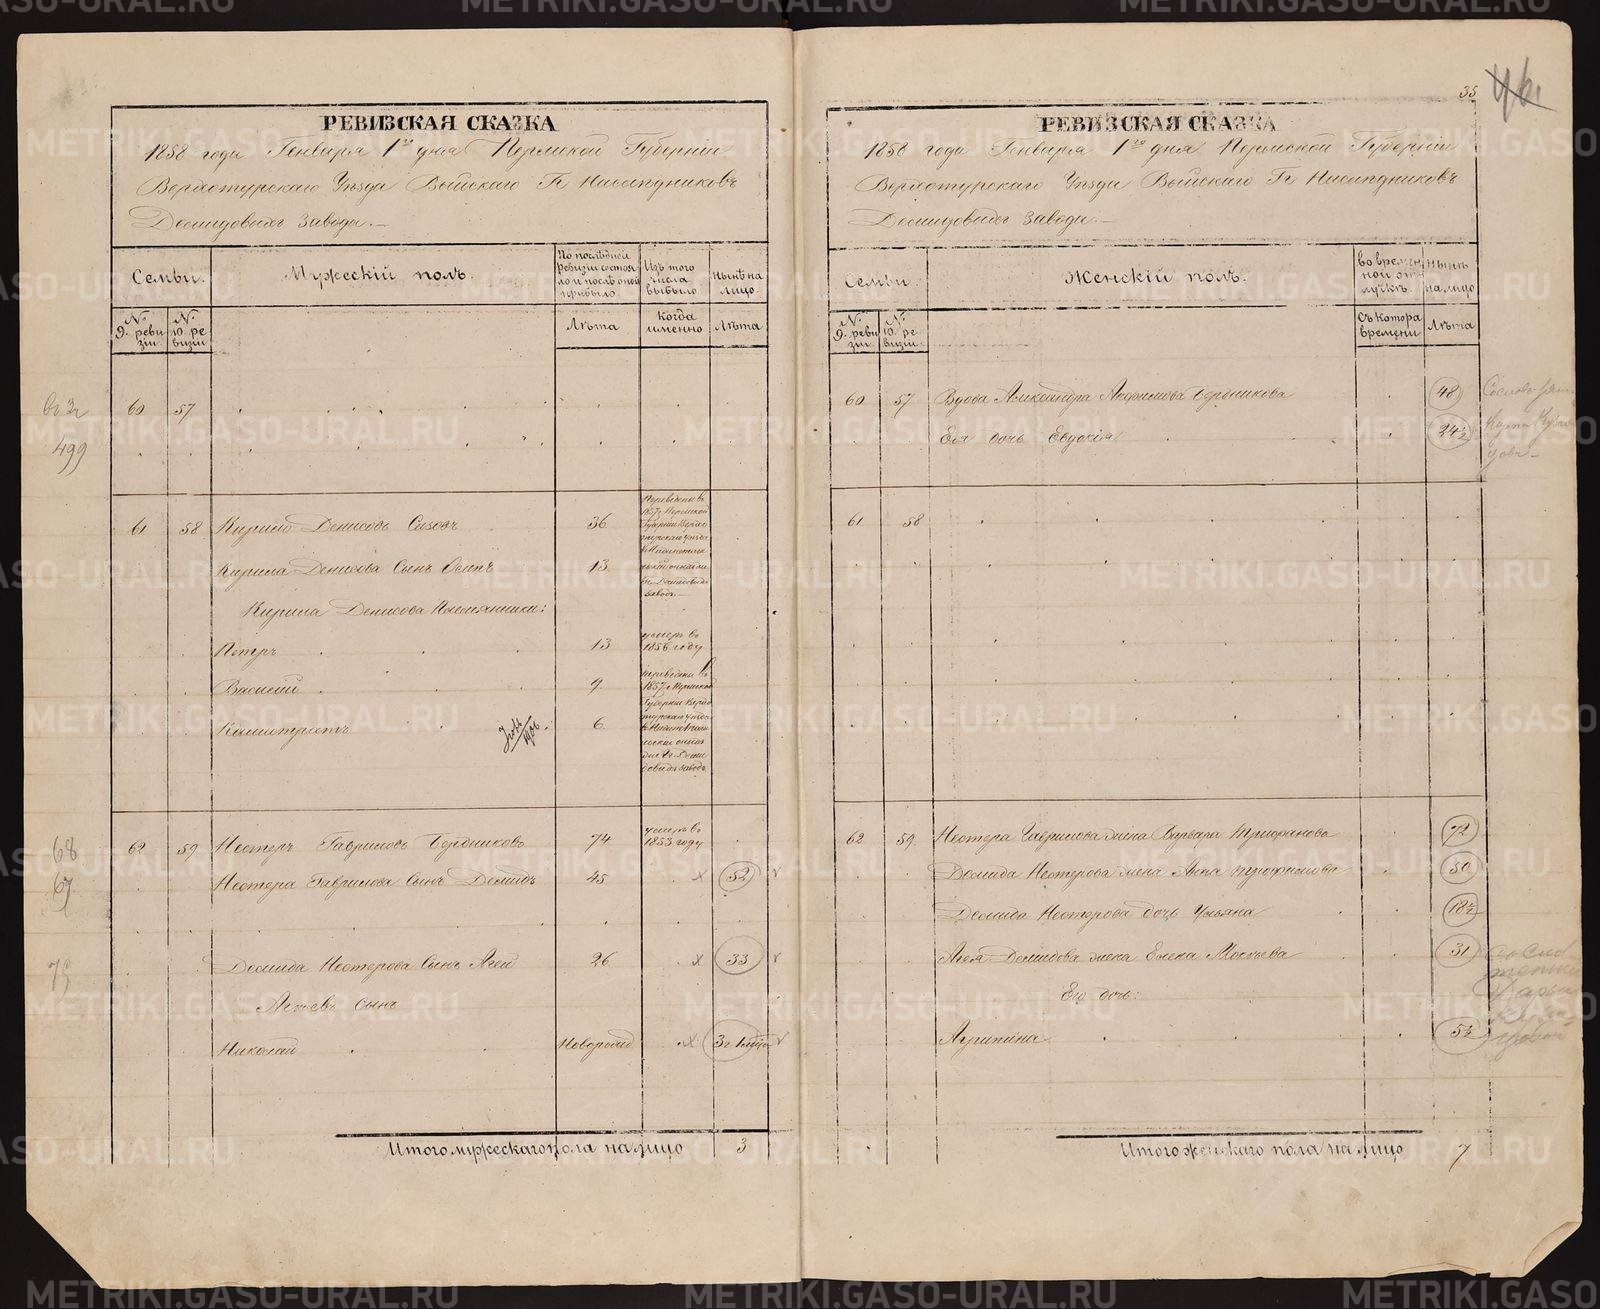 РЕВИЗСКАЯ СКАЗКА
1858 года Генваря 1го дня Пермской Губернiи
Верхотурскаго Уѣзда Выйскаго Гг Наслѣдниковъ
Демидовыхъ завода.—
Семьи.
Мужескiй полъ.
По послѣдней ревизiи состояло и послѣ оной прибыло
Изъ того числа выбыло
Нынѣ на лицо
№ 9. ревизiи
№ 10. ревизiи
Лѣта
Когда именно
Лѣта
60 57
61 58 Кирило Денисовъ Сизовъ 36
Переведены въ 1857 г Пермской Губернiи Верхотурскаго Уѣзда
Демидовыхъ заводъ.—
Кирила Денисова Сынъ Осипъ 13
Кирила Денисова Племянники:
Петръ 13 умеръ въ 1856 году
Василiй 9
переведены въ 1857 г Пермской Губернiи Верхотурскаго Уѣзда
Демидовыхъ заводъ
Калистратъ 6
62 59 Нестеръ Гавриловъ Бердниковъ 74 умеръ въ 1853 году
Нестера Гаврилова Сынъ Демидъ 45 52
Демида Нестерова Сынъ Агей 26 33
Агеевъ сынъ
Николай Новорожд 3г 1мѣс
Итого мужескаго пола на лицо 3
68
67
73
499
35
46.
РЕВИЗСКАЯ СКАЗКА
1858 года Генваря 1го дня Пермской Губернiи
Верхотурскаго Уѣзда Выйскаго Гг Наслѣдниковъ
Демидовыхъ завода.—
Семьи.
Женскiй полъ.
во временной отлучкѣ.
нынѣ на лицо
№ 9. ревизiи
№ 10. ревизiи
Съ котора времени
Лѣта
60 57 Вдова Александра Анфимова Бердникова 48
Ея дочь Евдокiя 24½
61 58
62 59 Нестера Гаврилова жена Варвара Трифанова 72
Демида Нестерова жена Анна Трофимова 50
Демида Нестерова дочь Ульяна 18½
Агея Демидова жена Елена Мокѣева 31
Его дочь:
Агрипина 5½
Итого женскаго пола на лицо 7
METRIKI.GASO-URAL.RU